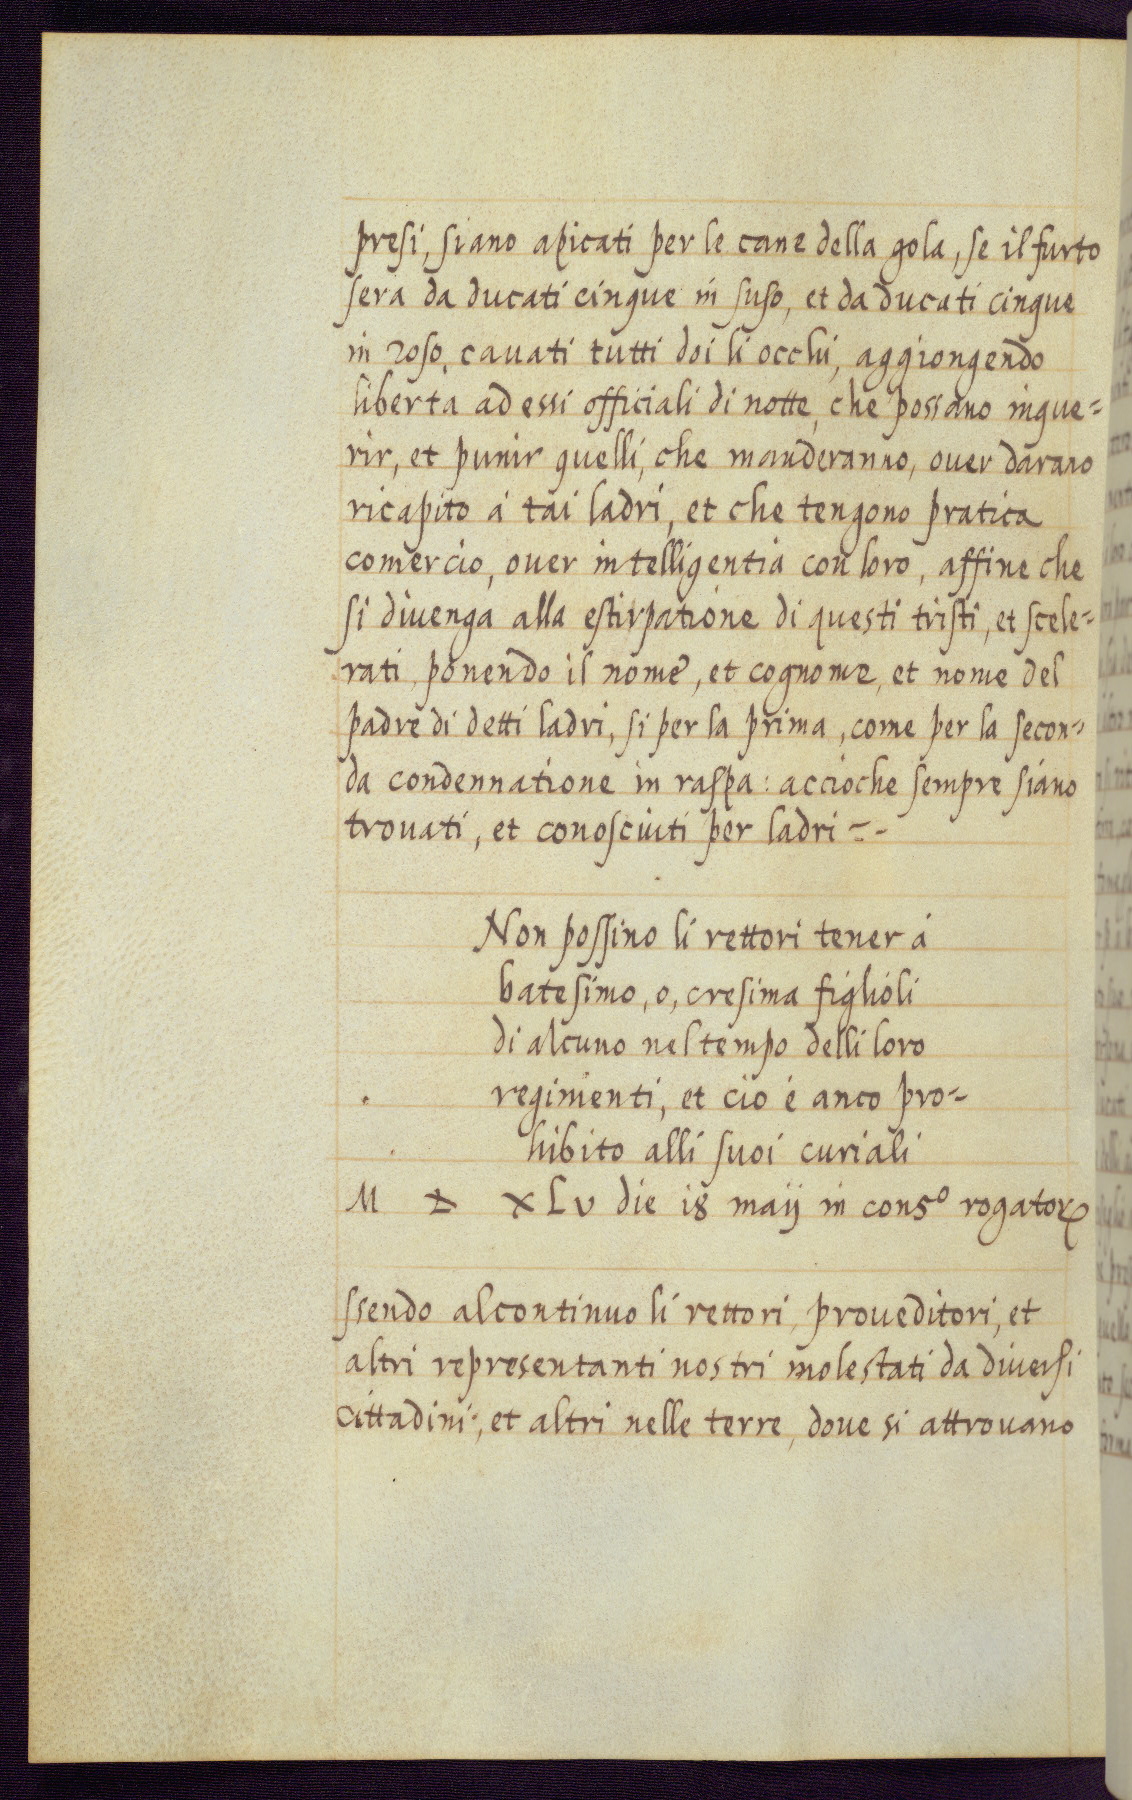 presi, siano apicati per le cane della gola, se il furto
sera da ducati cinque in suso, et da ducati cinque
in zoso, cauati tutti doi li occhi, aggiongendo
liberta ad essi officiali di notte, che possano inque=
rir, et punir quelli, che manderanno, ouer darano
ricapito á tai ladri, et che tengono pratica
comercio, ouer intelligentia con loro, affine che
si diuenga alla estirpatione di questi tristi, et scele=
rati, ponendo il nome, et cognome, et nome del
padre di detti ladri, si per la prima, come per la secon=
da condennatione in raspa: accioche sempre siano
trouati, et conosciuti per ladri =-
Non possino li rettori tener á
batesimo, o, cresima figlioli
di alcuno nel tempo delli loro
regimenti, et cio é anco pro=
hibito alli suoi curiali
M D XLv die 18 maij in conso rogatorꝝ
ssendo al continuo li rettori, proueditori, et
altri representanti nostri molestati da diuersi
cittadini, et altri nelle terre, doue si attrouano